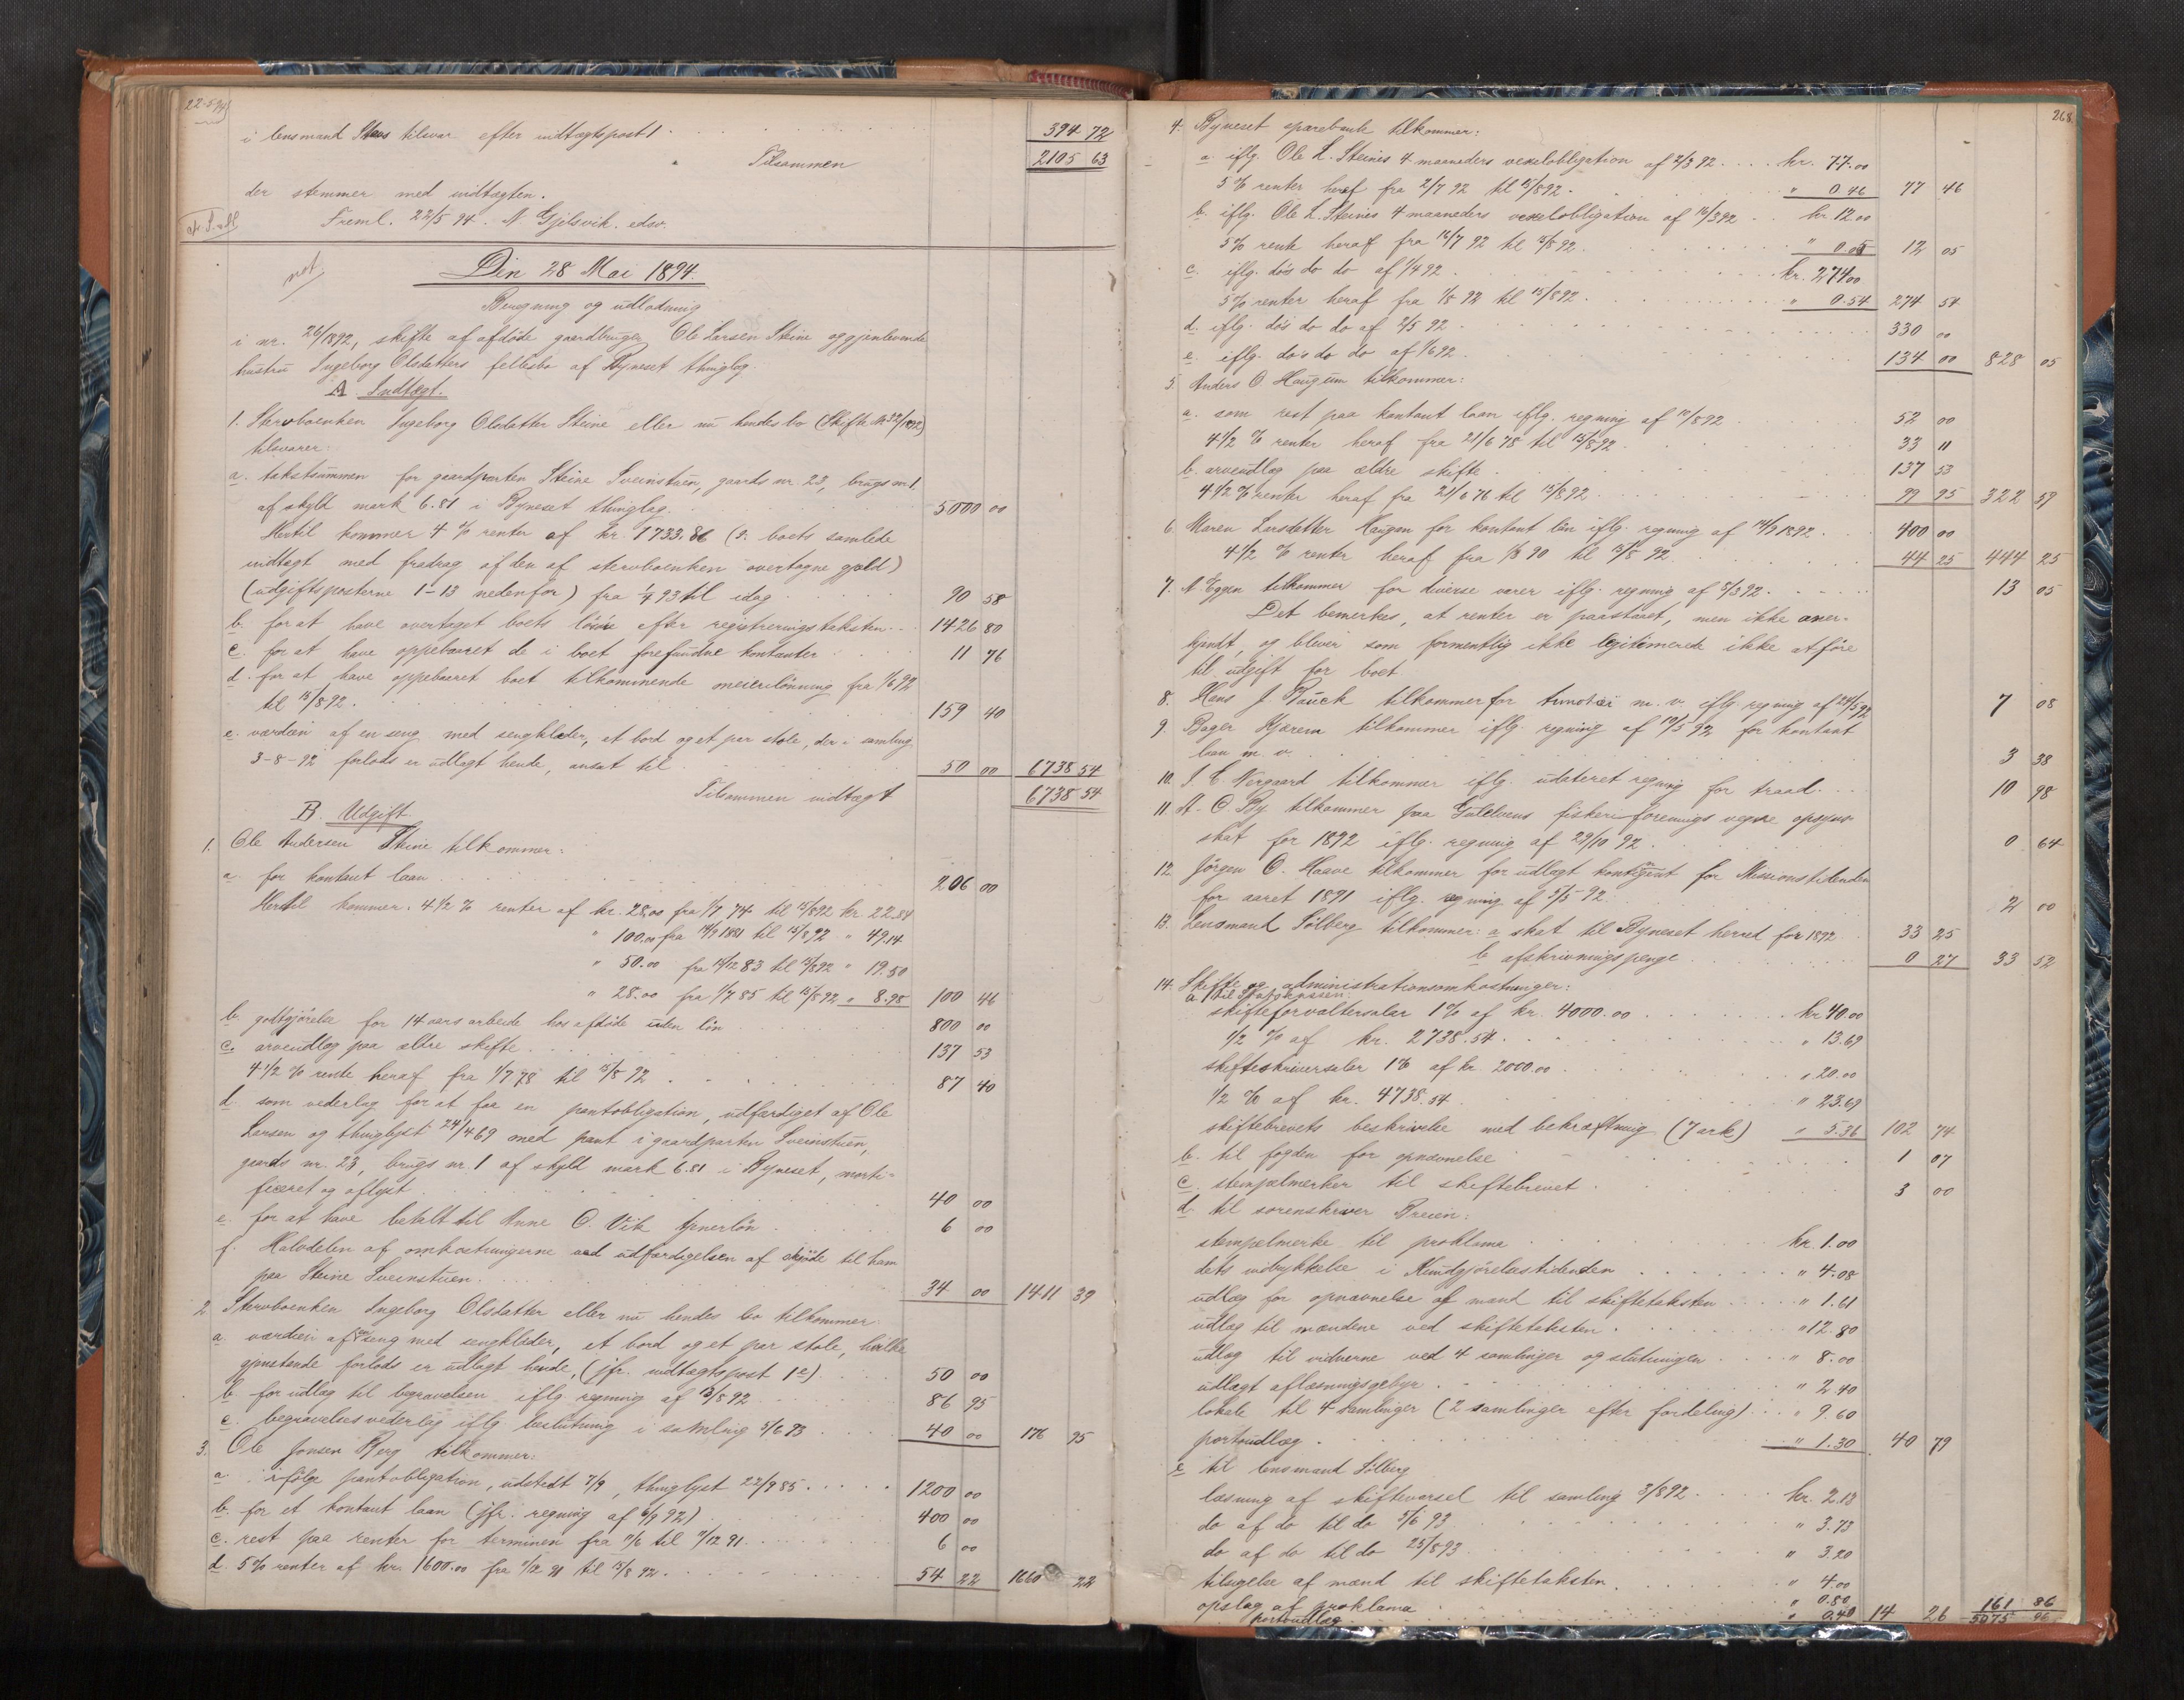 22-5-94
i lensmand Steens tilsvar efter indtægtspost 1 . . . 394 72
" Tilsammen 2105 63
der stemmer med indtægten.
Freml. 22/5 94. N. Gjelsvik. edsv.
not
Den 28 Mai 1894.
Beregning og udlodning
i nr. 26/1892, skifte af afdøde gaardbruger Ole Larsen Steine og gjenlevende
hustru Ingeborg Olsdatters fellesbo af Byneset thinglag.
A Indtægt.
1. Stervboenken Ingeborg Olsdatter Steine eller nu hendes bo (Skifte No 32/1892)
tilsvarer:
a. takstsummen for gaardparten Steine Sveinstuen, gaards nr. 23, brugs nr. 1.
af skyld mark 6.81 i Byneset thinglag. 5000 00
Hertil kommer 4 % renter af kr. 1733.86 (o: boets samlede
indtægt med fradrag af den af stervboenken overtagne gjæld)
(udgiftsposterne 1-13 nedenfor) fra 1/4 93 til idag 90 58
b. for at have overtaget boets løsøre efter registreringstaksten 1426 80
c. for at have oppebaaret de i boet forefundne kontanter 11 76
d. for at have oppebaaret boet tilkommende meierilønning fra 1/6 92
til 15/8 92. 159 40
e. værdien af en seng med sengklæder, et bord og et par stole, der i samling
3-8-92 forlods er udlagt hende, ansat til 50 00 6738 54
Tilsammen indtægt 6738 54
B. Udgift.
1. Ole Andersen Steine tilkommer:
a. for kontant laan 206 00
Hertil kommer: 4 1/2 % renter af kr. 28.00 fra 1/7 74 til 15/8 92 kr. 22.84
" 100.00 fra 14/9 1881 til 15/8 92 " 49.14
" 50.00 fra 14/12 83 til 15/8 92 " 19.50
" 28.00 fra 1/7 85 til 15/8 92 " 8.98 100 46
b. godtgjørelse for 14 aars arbeide hos afdøde uden løn 800 00
c. arveudlæg paa ældre skifte 137 53
4 1/2 % rente heraf fra 1/7 78 til 15/8 92 87 40
d. som vederlag for at faa en pantobligation, udfærdiget af Ole
Larsen og thinglyst 24/4 69 med pant i gaardparten Sveinstuen,
gaards nr. 23, brugs nr. 1 af skyld mark 6.81 i Byneset, morti-
ficeret og aflyst 40 00
e. for at have betalt til Anne O. Vik tjenerløn 6 00
f. Halvdelen af omkostningerne ved udfærdigelsen af skjøde til ham
paa Steine Sveinstuen. 34 00 1411 39
2. Stervboenken Ingeborg Olsdatter eller nu hendes bo tilkommer:
a. værdien af en seng med sengklæder, et bord og et par stole, hvilke
gjenstande forlods er udlagt hende, (jfr. indtægtspost 1 e) 50 00
b. for udlæg til begravelsen iflg. regning af 13/8 92 86 95
c. begravelsesvederlag iflg. beslutning i samling 5/6 93 40 00 176 95
3. Ole Jonsen Berg tilkommer:
a. ifølge pantobligation, udstedt 7/9, thinglyst 22/9 85 1200 00
b. for et kontant laan (jfr. regning af 6/9 92) 400 00
c. rest paa renter for terminen fra 11/6 til 11/12 91 6 00
d. 5 % renter af kr. 1600.00 fra 11/12 91 til 15/8 92 54 22 1660 22
268.
4. Byneset sparebank tilkommer:
a. iflg. Ole L. Steines 4 maaneders vexelobligation af 2/3 92 kr. 77.00
5 % renter heraf fra 2/7 92 til 15/8 92. " 0.46 77 46
b. iflg. Ole L. Steines 4 maaneders vexelobligation af 16/3 92 kr. 12.00
5 % rente heraf fra 16/7 92 til 15/8 92. " 0.05 12 05
c. iflg. do's do do af 1/4 92 kr. 274.00
5 % renter heraf fra 1/8 92 til 15/8 92. " 0.54 274 54
d. iflg. do's do do af 2/5 92 330 00
e. iflg. do's do do af 1/6 92 134 00 828 05
5. Anders O Haugum tilkommer:
a. som rest paa kontant laan iflg. regning af 10/8 92 52 00
4 1/2 % renter heraf fra 21/6 78 til 15/8 92 33 11
b. arveudlæg paa ældre skifte 137 53
4 1/2 % renter heraf fra 21/6 76 til 15/8 92 99 95 322 59
6. Maren Larsdatter Haugen for kontant lån iflg. regning af 14/9 1892. 400 00
4 1/2 % renter heraf fra 1/3 90 til 15/8 92. 44 25 444 25
7. N. Eggen tilkommer for diverse varer iflg. regning af 8/3 92. 13 05
Det bemerkes, at renter er paastaaet, men ikke aner-
kjendt, og bliver som formentlig ikke legitimerede ikke at føre
til udgift for boet.
8. Hans J. Bauck tilkommer for timothei m. v. iflg. regning af 24/5 92 7 08
9. Bager Hjærem tilkommer iflg. regning af 19/5 92 for kontant
laan m. v. 3 38
10. I. C. Nergaard tilkommer iflg. udateret regning for traad. 10 98
11. A. O By tilkommer paa Guldelvens fiskeriforenings vegne opsyns-
skat for 1892 iflg. regning af 29/10 92. 0 64
12. Jørgen O. Haave tilkommer for udlagt kontingent for Missionstidenden
for aaret 1891 iflg. regning af 5/5 92. 2 00
13. Lensmand Sølberg tilkommer: a. skat til Byneset herred for 1892 33 25
b. afskrivningspenge 0 27 33 52
14. Skifte og administrationsomkostninger:
a. til Statskassen:
skifteforvaltersalær 1 % af kr. 4000.00 kr 40.00
1/2 % af kr. 2738.54 " 13.69
skifteskriversalær 1 % af kr. 2000.00 " 20.00
1/2 % af kr. 4738.54 " 23.69
skiftebrevets beskrivelse med bekræftning (7 ark) " 5.36 102 74
b. til fogden for opnævnelse 1 07
c. stempelmerker til skiftebrevet 3 00
d. til sorenskriver Breien:
stempelmerke til proklama kr. 1.00
dets indrykkelse i Kundgjørelsestidenden " 4.08
udlæg for opnævnelse af mænd til skiftetaksten " 1.61
udlæg til mændene ved skiftetaksten " 12.80
udlæg til vidnerne ved 4 samlinger og slutningen " 8.00
udlagt aflæsningsgebyr " 2.40
lokale til 4 samlinger (2 samlinger efter fordeling) " 9.60
portoudlæg " 1.30 40 79
e. til lensmand Sølberg
læsning af skiftevarsel til samling 3/8 92 kr. 2.13
do af do til do 5/6 93 " 3.73
do af do til do 25/8 93 " 3.20
tilsigelse af mænd til skiftetaksten. " 4.00
opslag af proklama " 0.80
portoudlæg " 0.40 14 26 161 86
5075 96